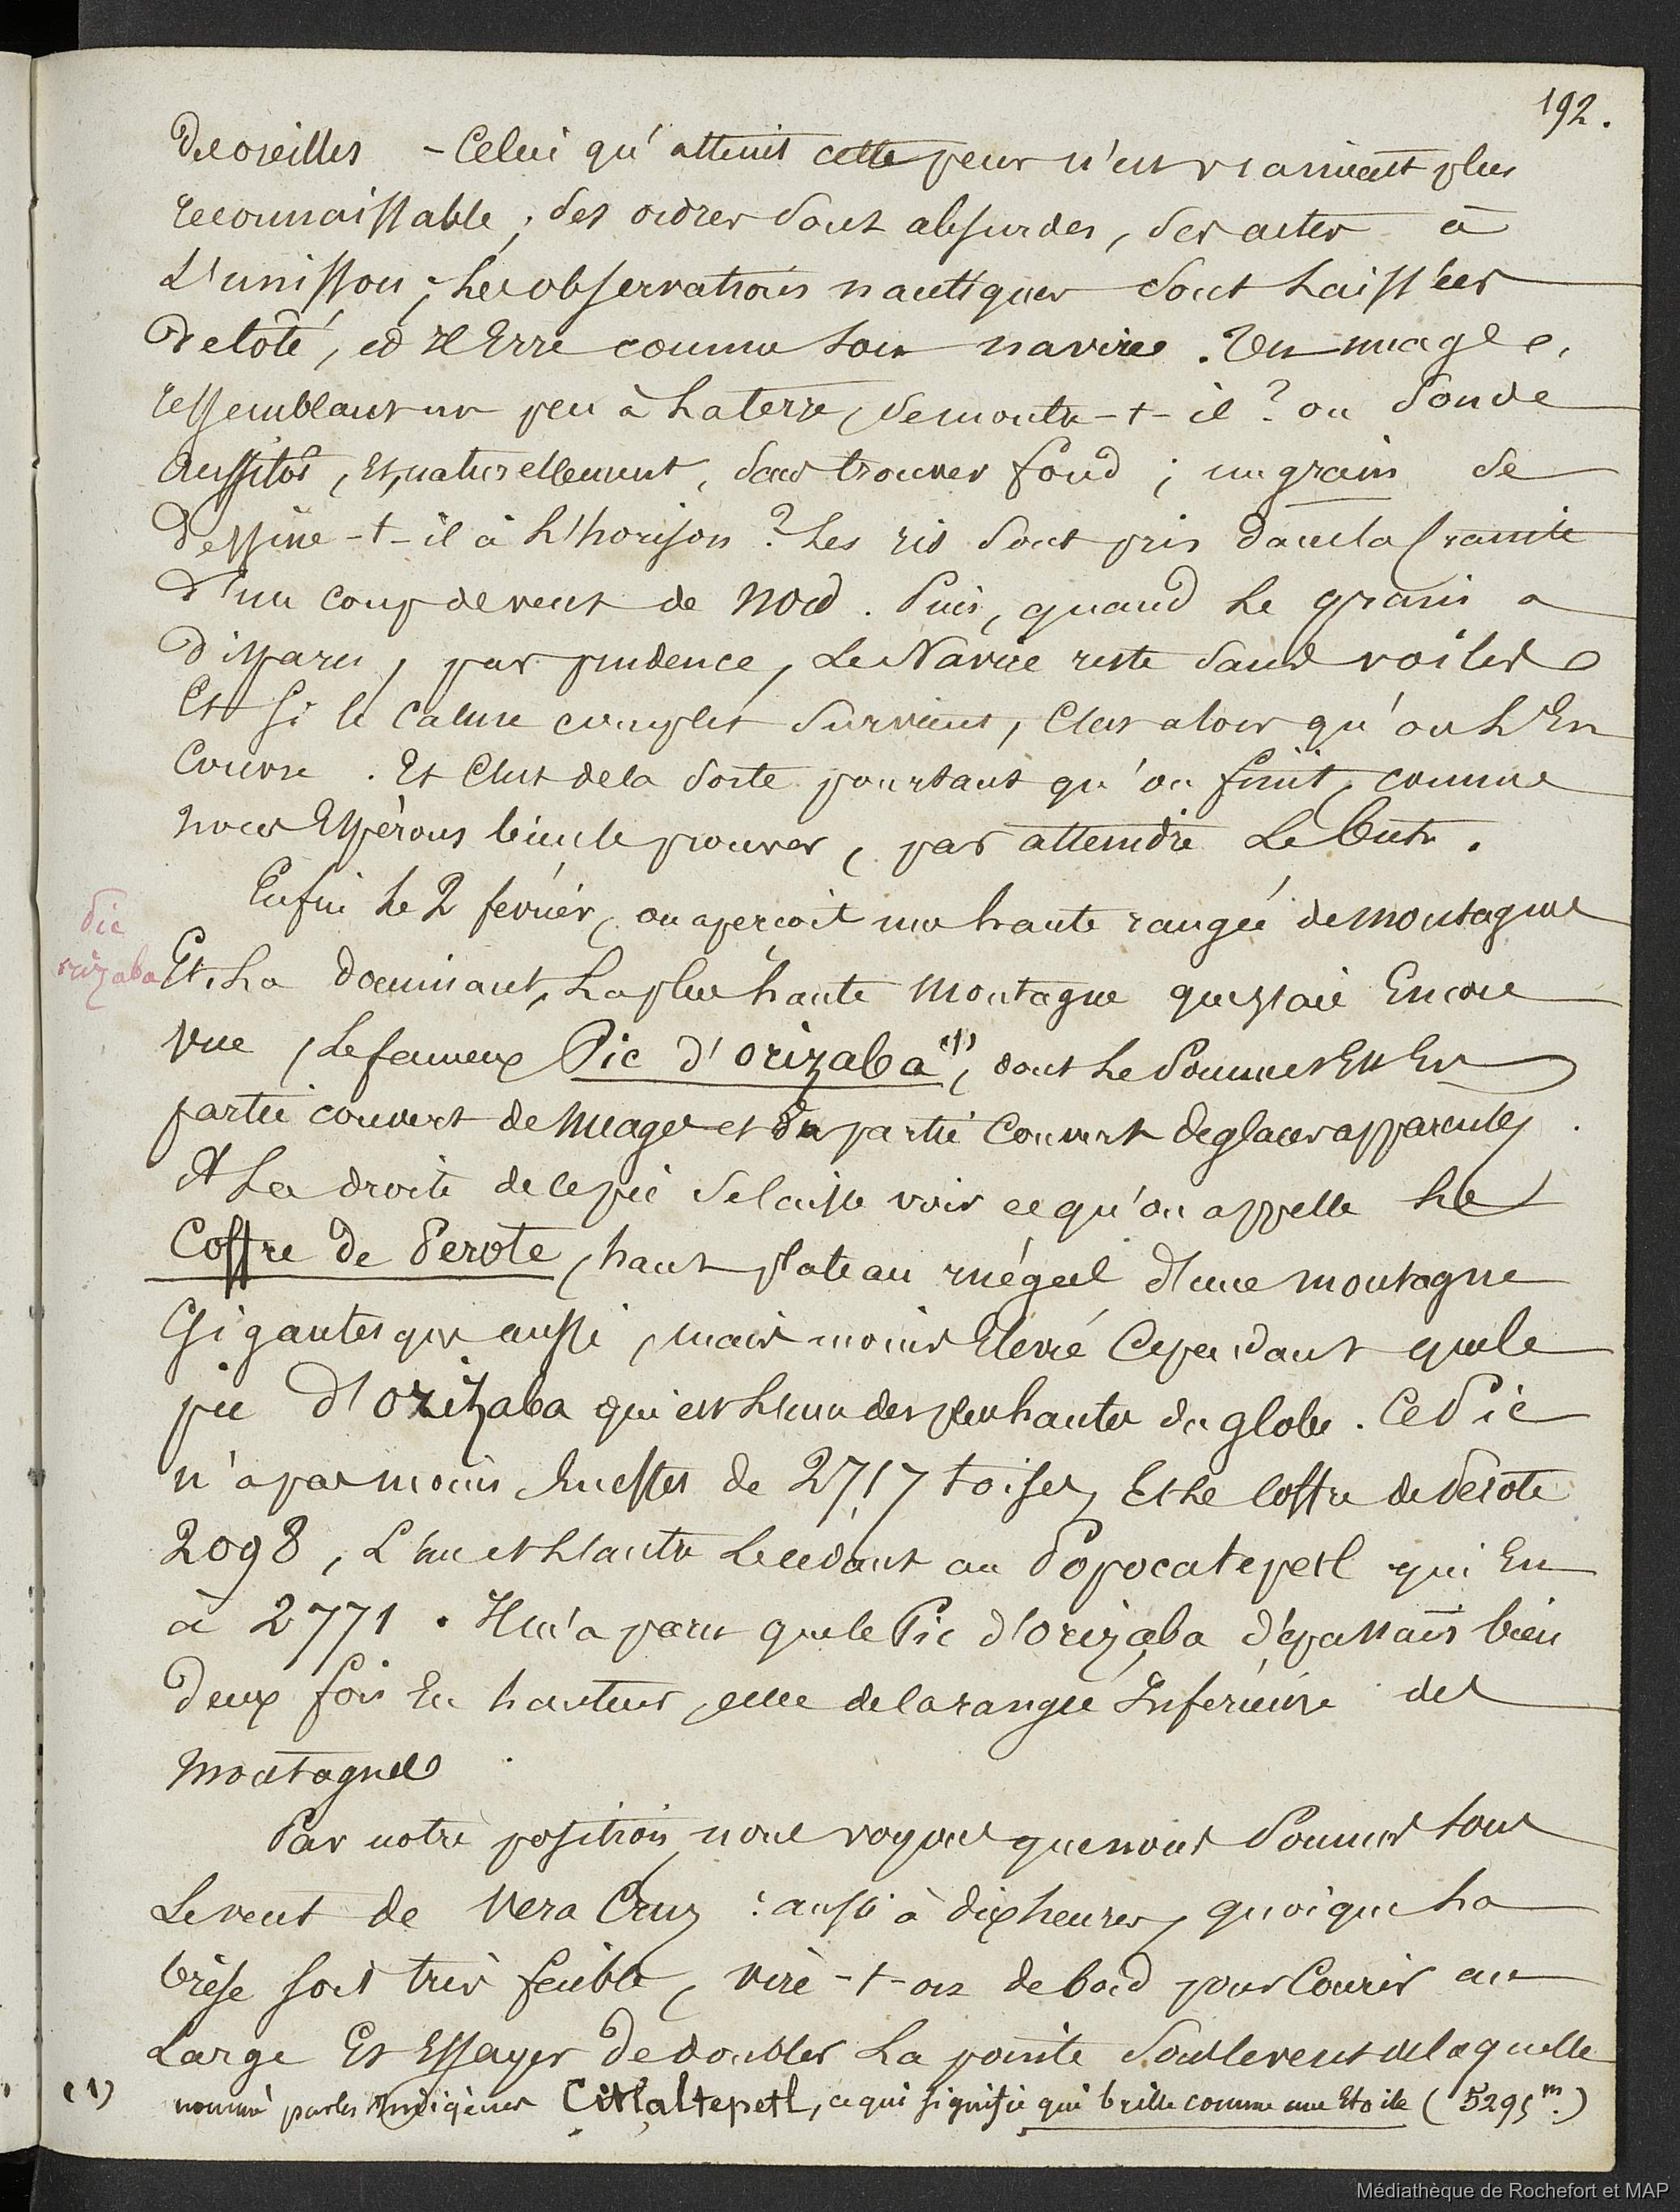 192.
des oreilles - Celui qu'atteint cette peur n'est vraiment plus
reconnaissable ; ses ordres sont absurdes, ses actes à
L'unisson ; les observations nautiques sont laissées
de côté, et il Erre comme son navire. Un nuage
ressemblant un peu à la terre, se montre-t-il ? on sonde
aussitôt, Et, naturellement, sans trouver fond ; un grain se
dessine-t-il à l'horison ? les ris sont pris dans la crainte
d'un coup de vent de Nord. Puis, quand le grain a
disparu, par prudence, Le Navire reste sans voiles
Et si le calme complet survient, C'est alors qu'on l'En
Couvre. Et C'est de la sorte pourtant qu'on finit, comme
nous Espérons bien le prouver, par atteindre Le but.
Enfin le 2 février, on aperçoit une haute rangée de montagnes
Pic
orizaba
Et, La dominant, La plus haute montagne que j'aie Encore
vue, Le fameux Pic d'orizaba (1), dont le sommet Est En
partie couvert de nuages et En partie Couvert de glaces apparentes.
A La droite de ce pic se laisse voir ce qu'on appelle le
Coffre de Perote, haut plateau inégal d'une montagne
Gigantesque aussi, mais moins Elevé Cependant que le
pic d'Orizaba qui est l'un des plus hauts du globe. Ce Pic
n'a pas moins En effet de 2717 toises, Et Le Coffre de Perote
2098, L'un et L'autre Le cédant au Popocatepetl qui En
à 2771. Il m'a paru que le Pic d'Orizaba dépassait bien
deux fois En hauteur celle de la rangée Inférieure des
montagnes
Par notre position nous voyons que nous sommes sous
Le vent de Vera Cruz : aussi à dix heures, quoique la
brise soit très faible, vire-t-on de bord pour Courir au
Large Et Essayer de doubler La pointe sous le vent de laquelle
(1) nommé par les Indigènes Citlaltepetl, ce qui signifie qui brille comme une Etoile (5295 m.)
Médiathèque de Rochefort et MAP